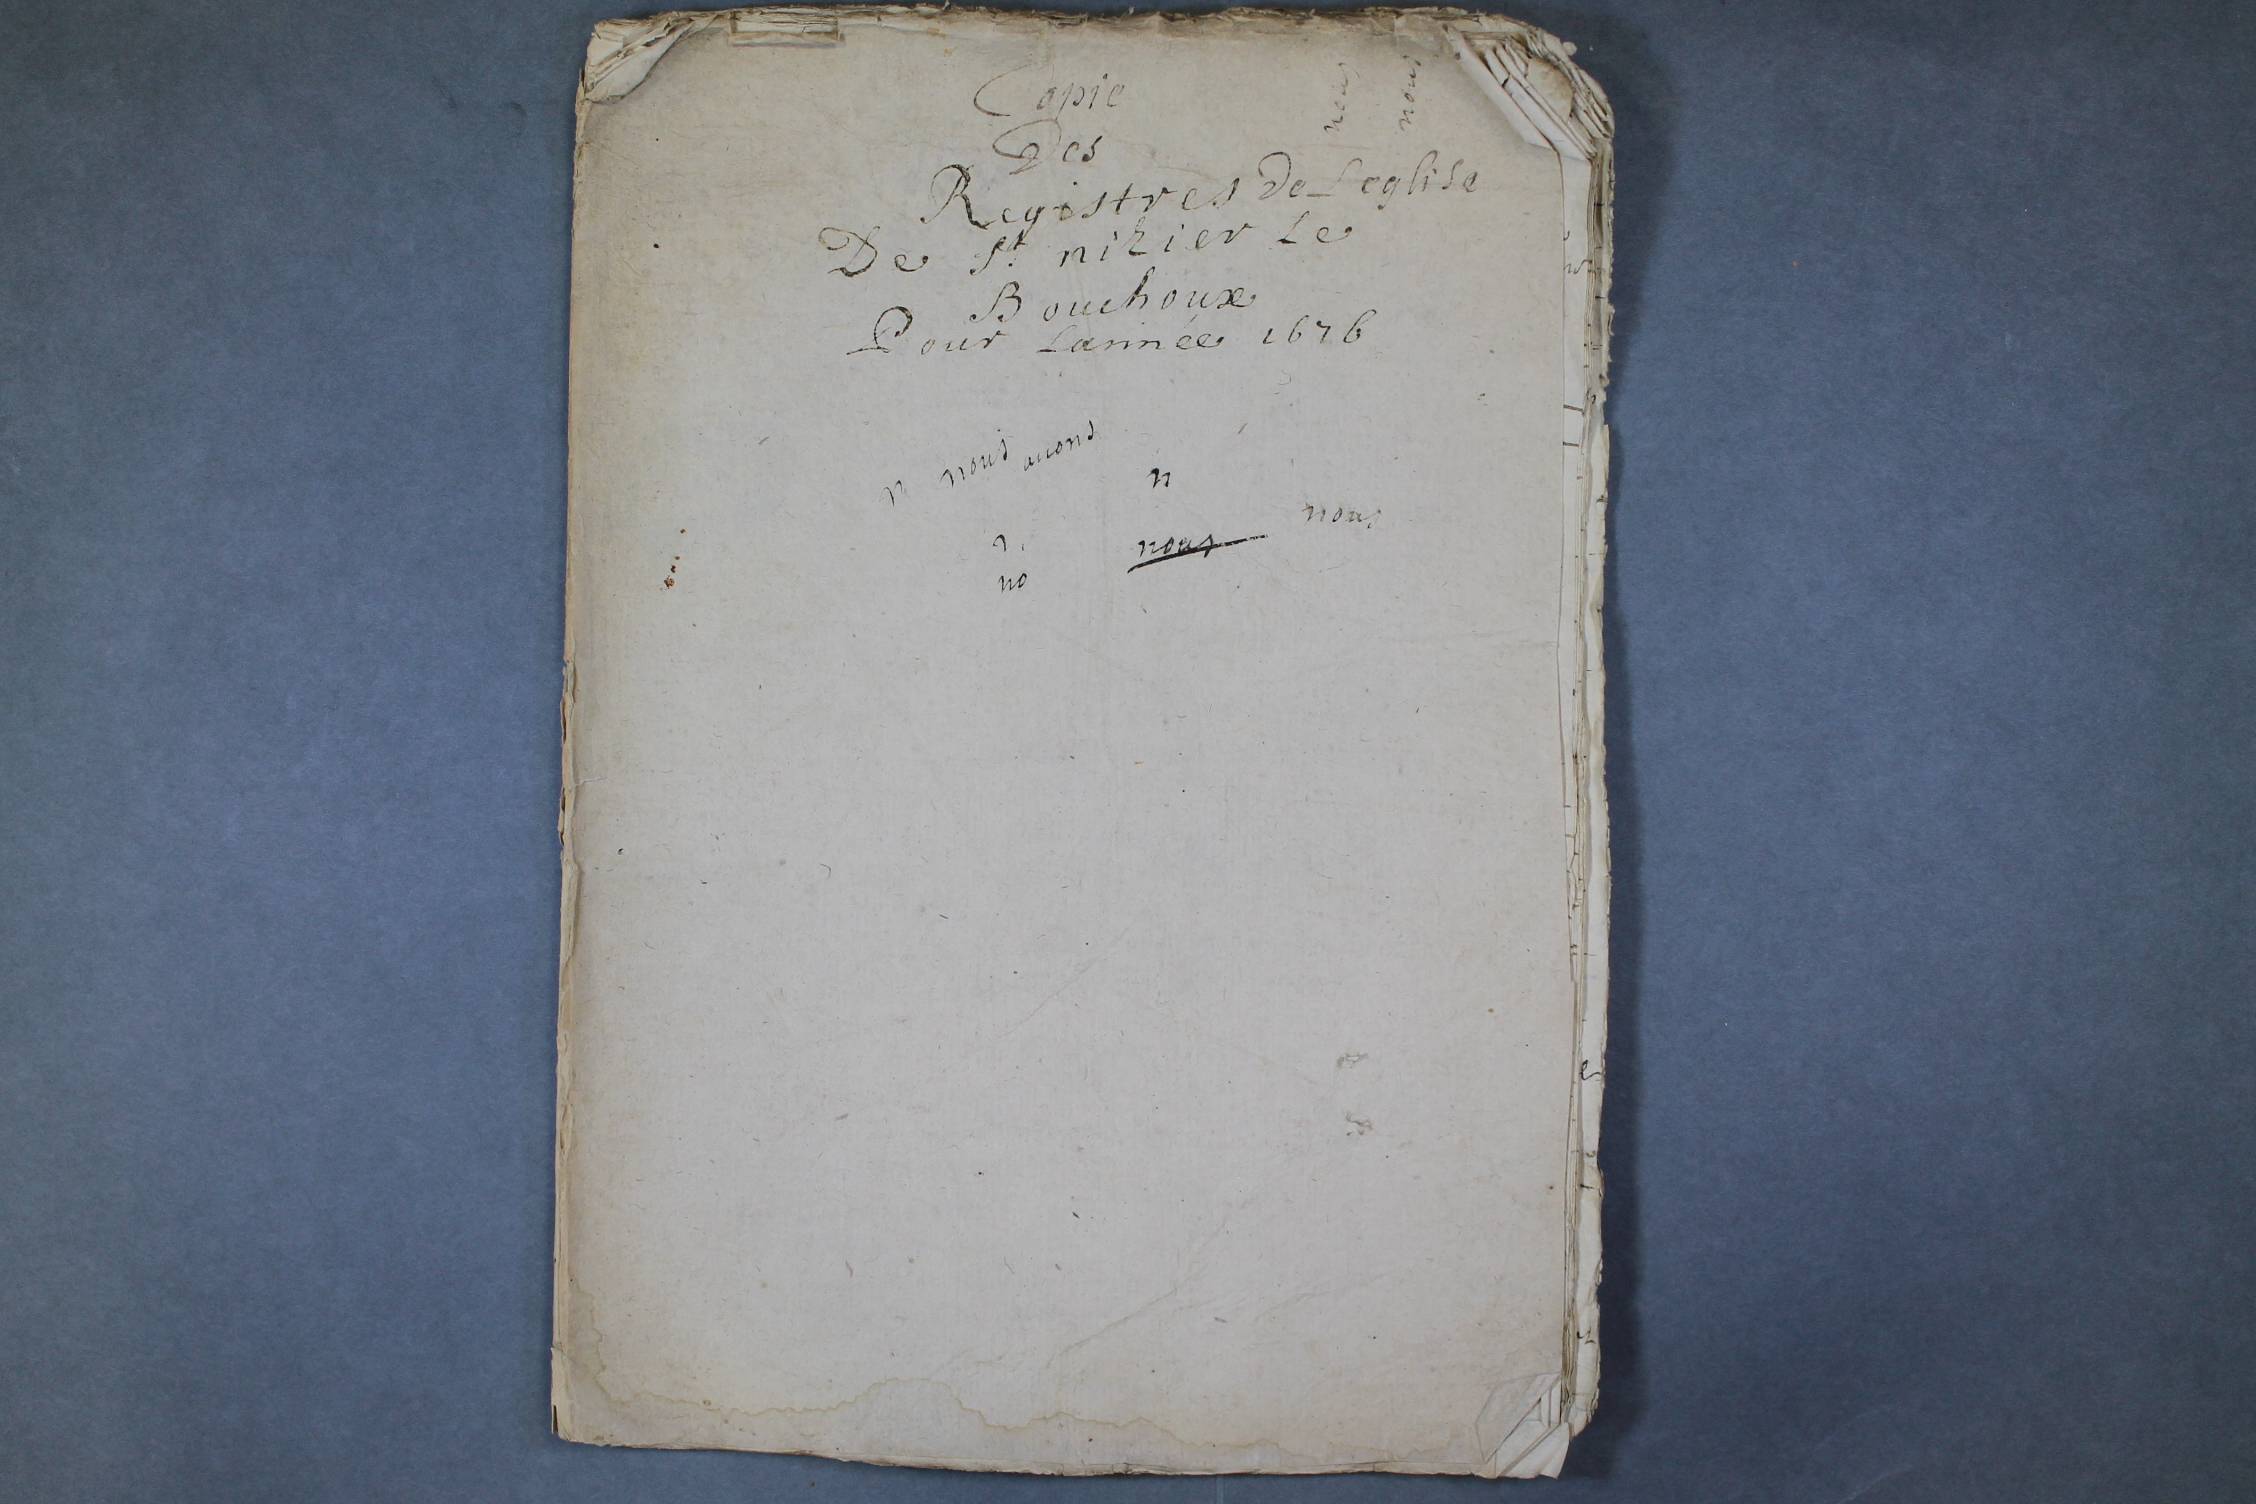 Copie
Des
Registres De Leglise
De St nizier Le
Bouchoux
Pour Lannée 1676
nous
nous
n nous auons
n
nous
n
nous
no